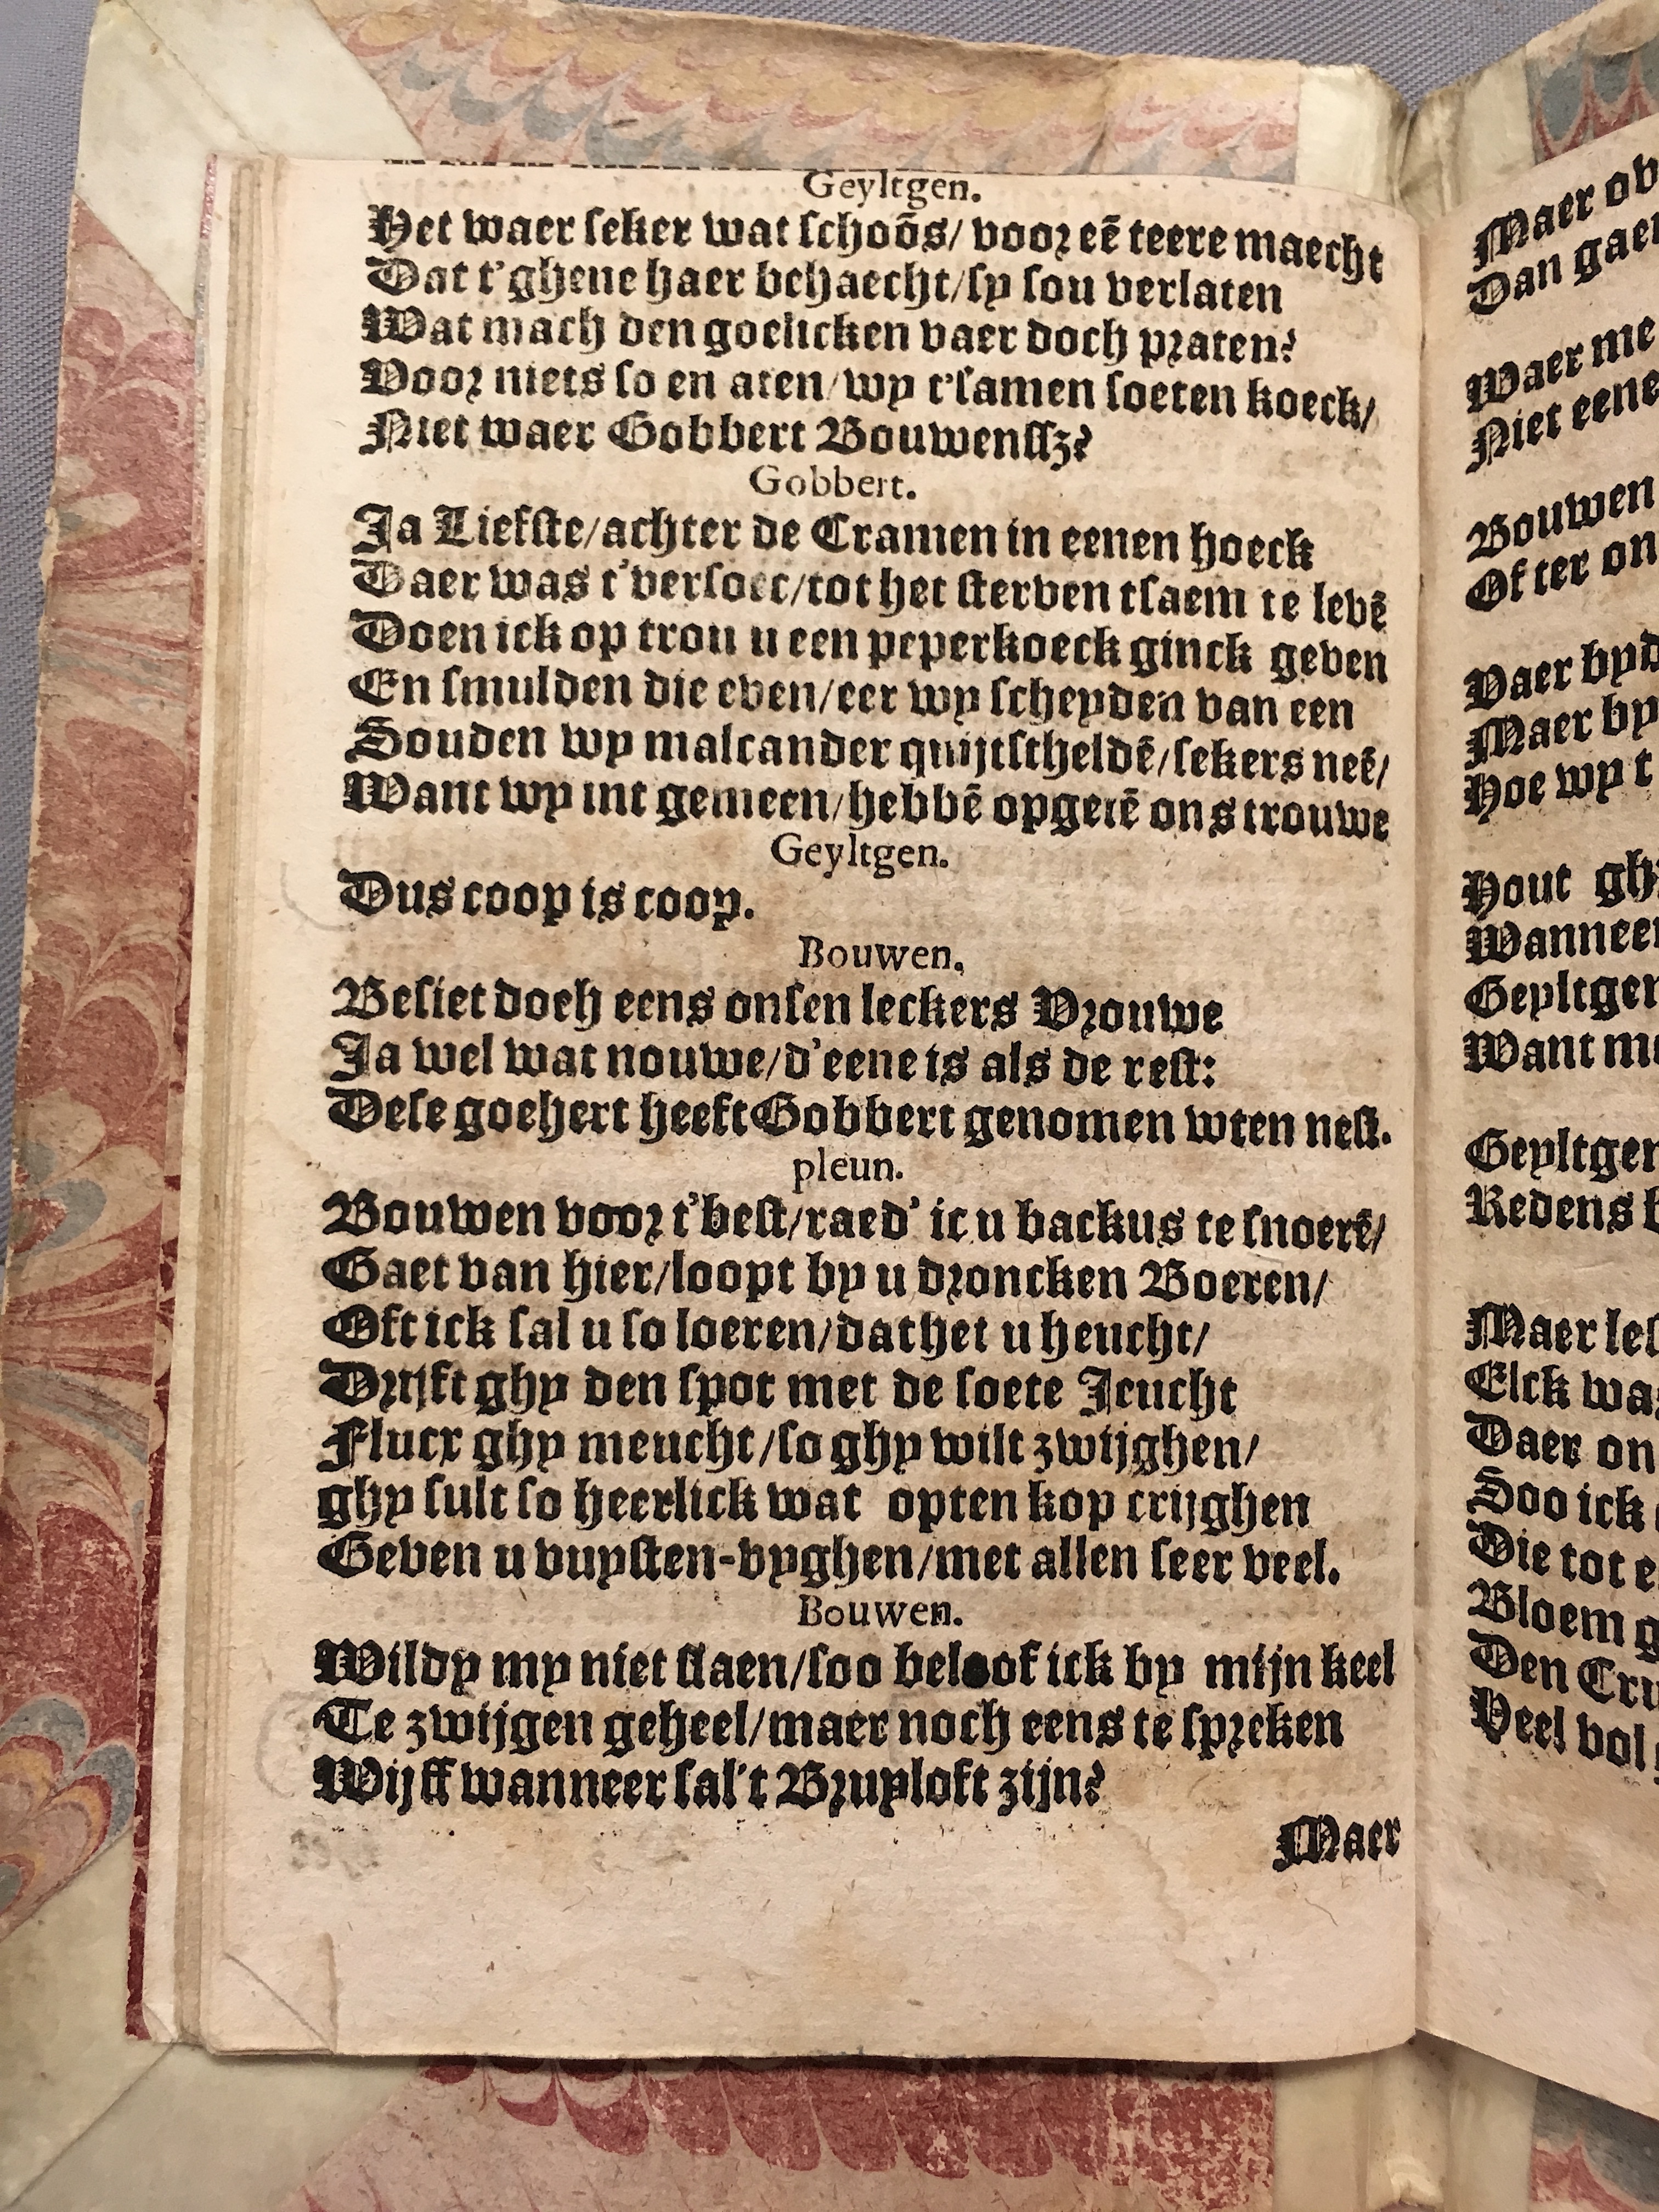 Geyltgen.
Het waer seker wat schoõs/ voor eẽ teere maecht
Dat t'ghene haer behaecht/sy sou verlaten
Wat mach den goelicken vaer doch praten?
Voor niets so en aten/wy t'samen soeten koeck/
Niet waer Gobbert Bouwenssz?
Gobbert.
Ja Liefste/achter de Cramen in eenen hoeck
Daer was t'versoet/tot het sterven tsaem te levẽ
Doen ick op trou u een peperkoeck ginck geven
En smulden die even/eer wy scheyden van een
Souden wy malcander quijtstheldẽ/sekers neẽ/
Want wy int gemeen/hebbẽ opgetẽ ons trouwe
Geyltgen.
Dus coop is coop.
Bouwen.
Besiet doeh eens onsen leckers Vrouwe
Ja wel wat nouwe/d'eene is als de rest:
Dese goehert heeft Gobbert genomen wten nest.
pleun.
Bouwen voor t'best/raed' ic u backus te snoerẽ/
Gaet van hier/loopt by u droncken Boeren/
Oft ick sal u so loeren/dat het u heucht/
Drijft ghy den spot met de soete Jeucht
Flucx ghy meucht/so ghy wilt zwijghen/
ghy sult so heerlick wat opten kop crijghen
Geven u vuysten-vyghen/met allen seer veel.
Bouwen.
Wildy my niet slaen/soo beloof ick by mijn keel
Te zwijgen geheel/maer noch eens te spreken
Wijff wanneer sal't Bruyloft zijn?
Maer
Maer
Dan
Waer me
Niet eene
Bouwen
Of ter
Maer by
Hoe wy t
Hout
Want
Redens
Maer
Elck
Daer
Soo ick
Die tot
Bloem
Den
Veel vol